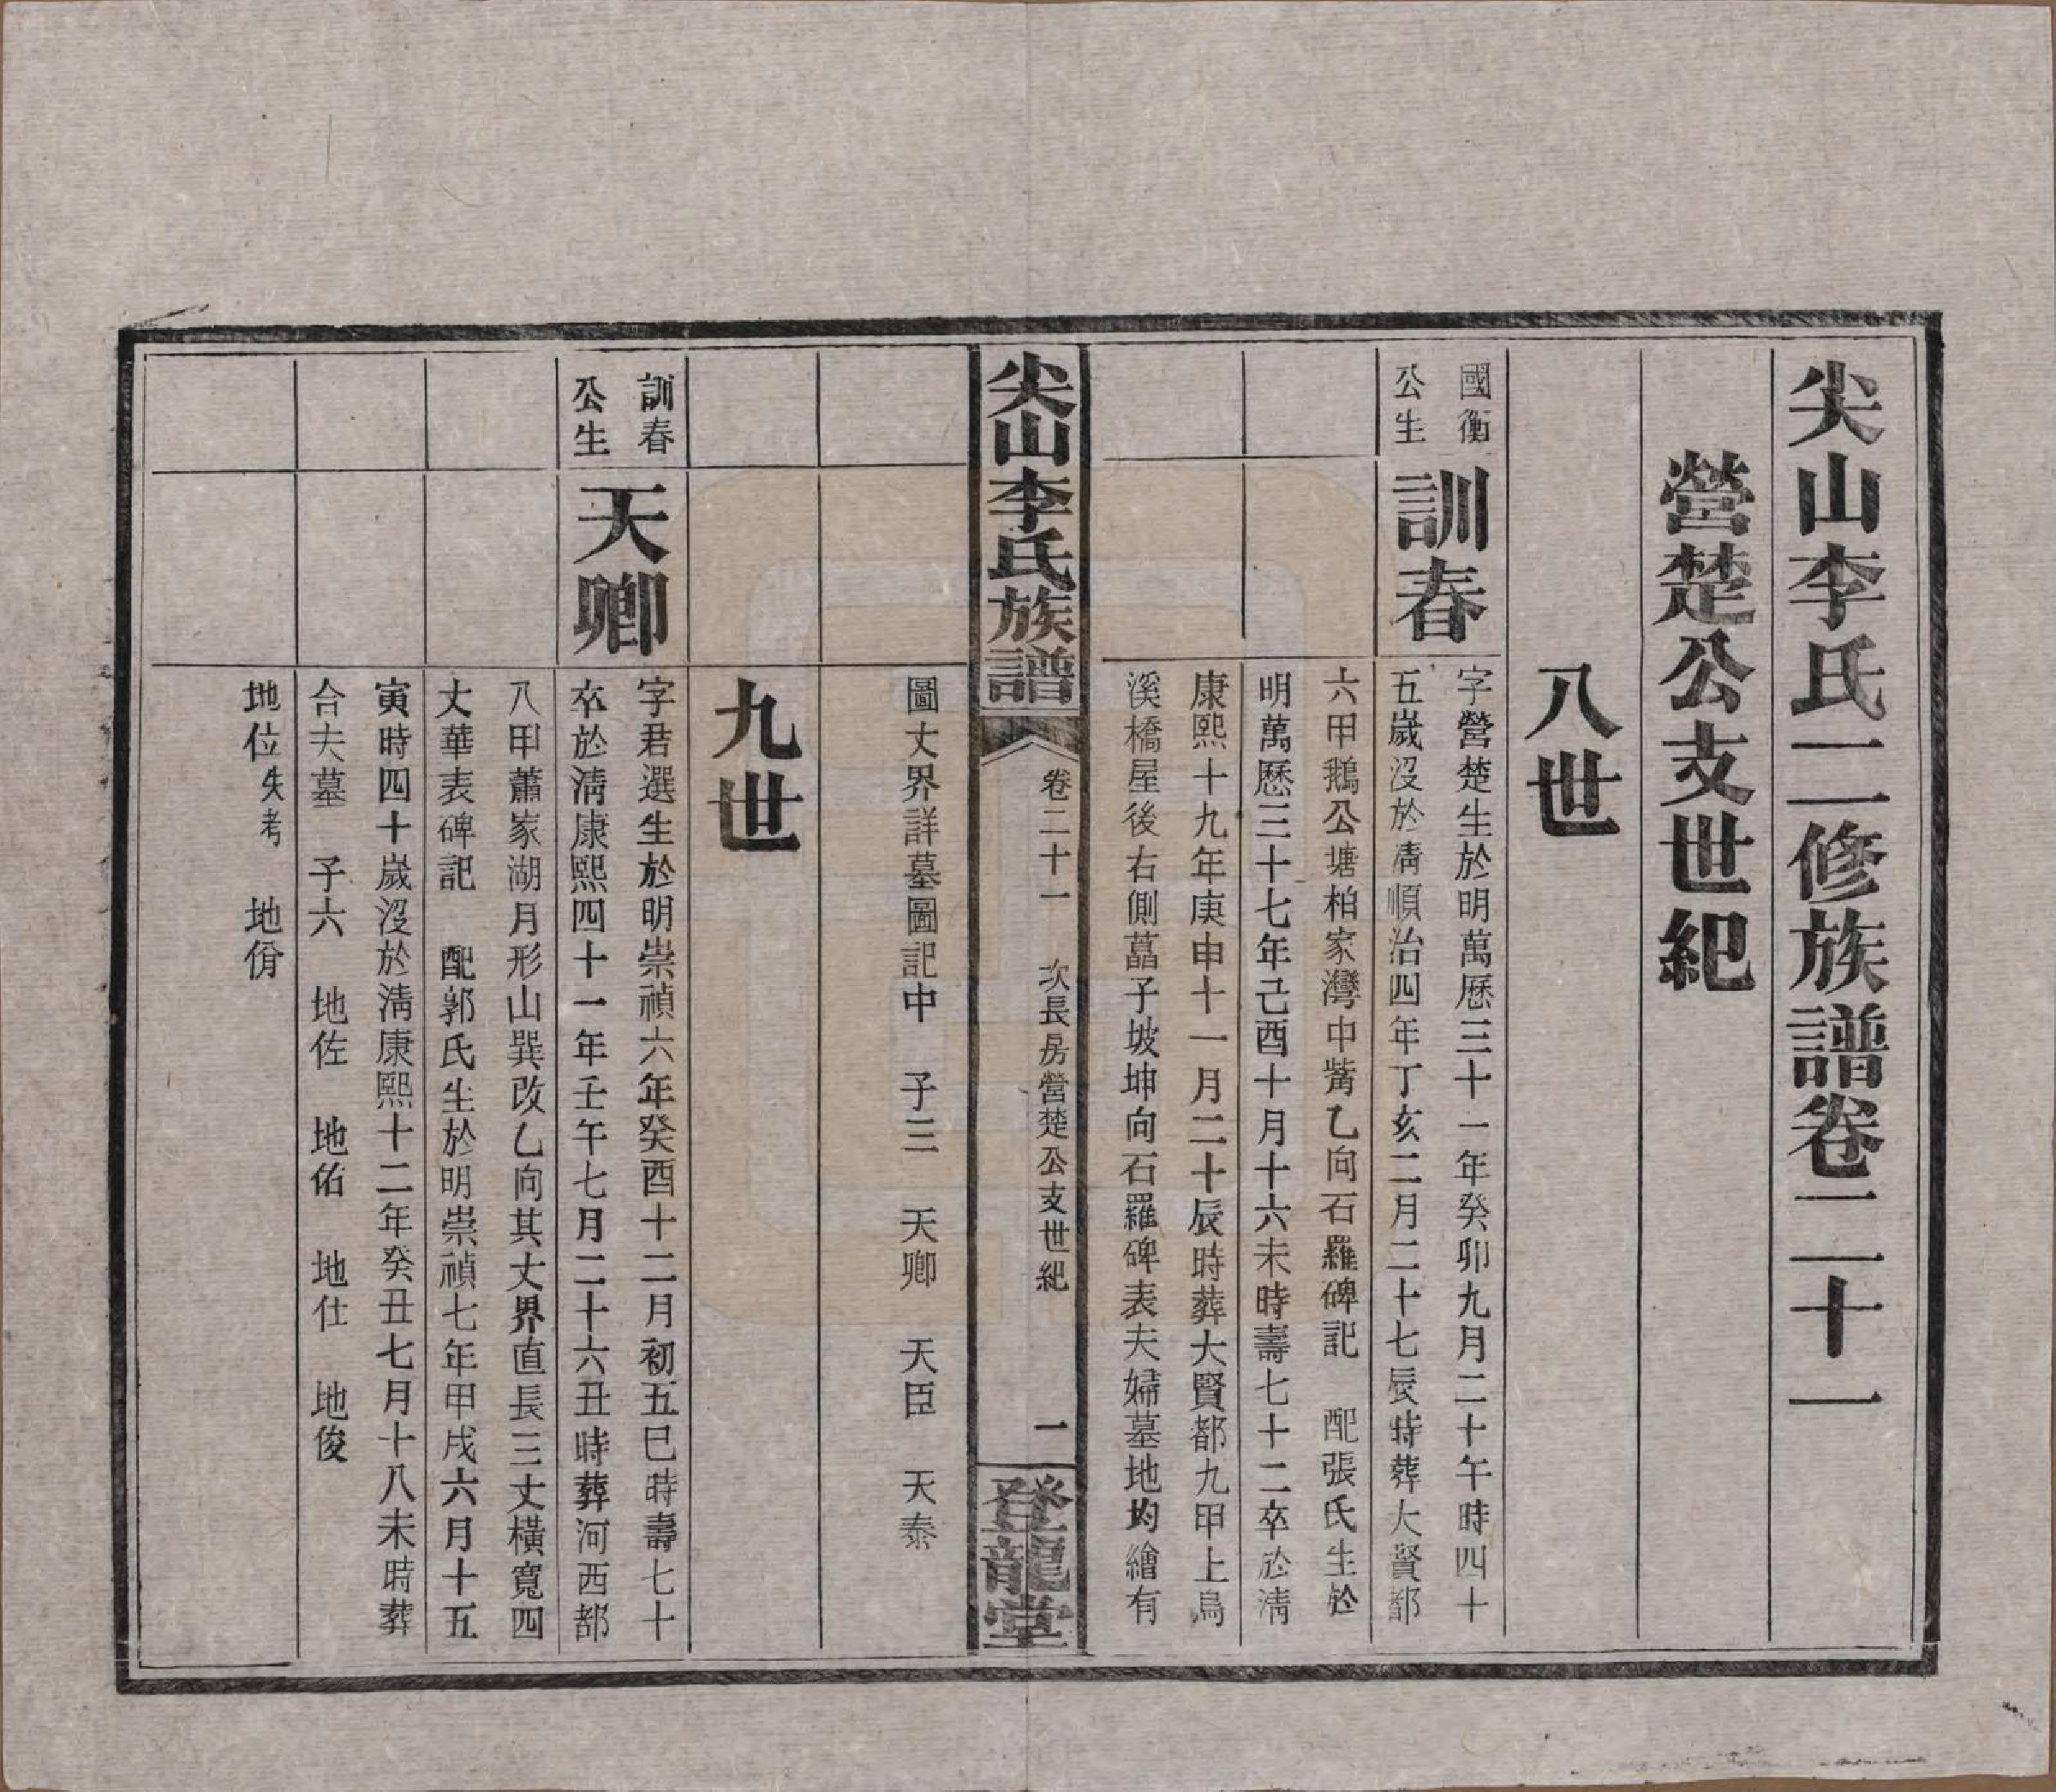 尖山李氏二修族譜卷二十一
營楚公支世紀
八世
國衡
公生
訓春
字營楚生於明萬歷三十一年癸卯九月二十午時四十
五歲沒於淸順治四年丁亥二月二十七辰時葬大賢都
六甲鵝公塘柏家灣中觜乙向石羅碑記　配張氏生於
明萬歷三十七年己酉十月十六未時壽七十二卒於淸
康熙十九年庚申十一月二十辰時葬大賢都九甲上鳥
溪橋屋後右側藠子坡坤向石羅碑表夫婦墓地均繪有
尖山李氏族譜
卷二十一　次長房營楚公支世紀　一
登龍堂
圖丈界詳墓圖記中　子三　天卿　天臣　天泰
九世
訓春
公生
天卿
字君選生於明崇禎六年癸酉十二月初五巳時壽七十
卒於淸康熙四十一年壬午七月二十六丑時葬河西都
八甲蕭家湖月形山巽改乙向其丈界直長三丈橫寬四
丈華表碑記　配郭氏生於明崇禎七年甲戌六月十五
寅時四十歲沒於淸康熙十二年癸丑七月十八未時葬
合夫墓　子六　地佐　地佑　地仕　地俊
地位失考　地俏